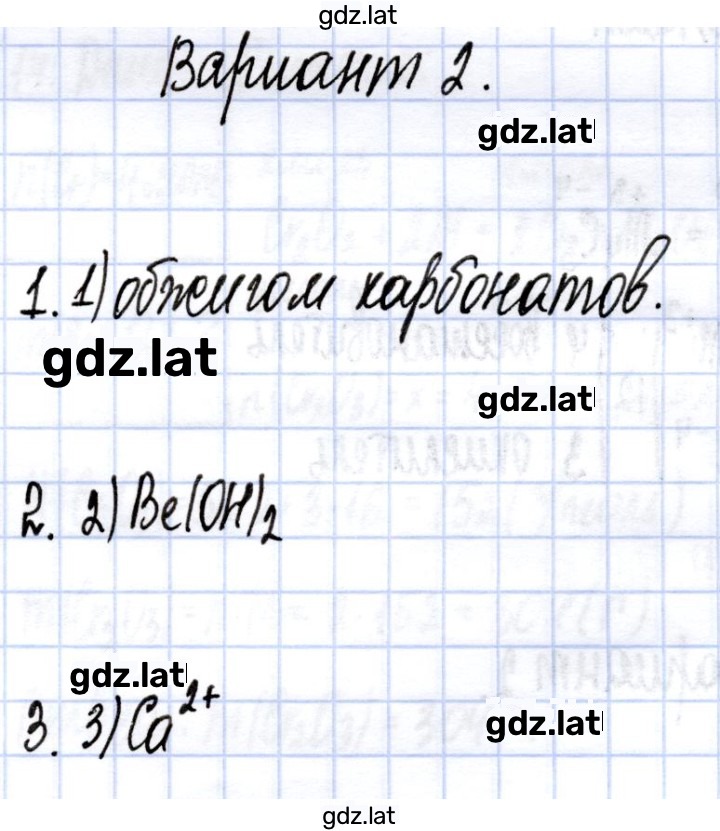 gdz.lat
Вариант 2.
gdz.lat
1. 1) обжигом карбонатов.
gdz.lat
gdz.lat
2. 2) Be(OH)2
gdz.lat
3. 3) Ca2+
gdz.lat
gdz.lat